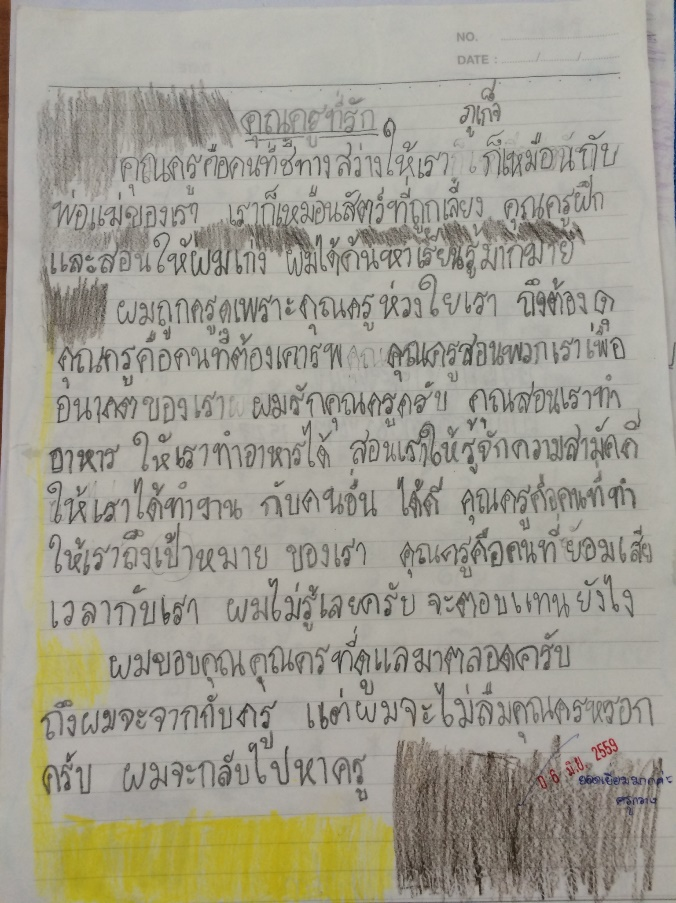 NO.
DATE : / /
คุณครูที่รัก ภูเก็จ
คุณครูคือคนที่ชี้ทางสว่างให้เรา ก็เหมือนกับ
พ่อแม่ของเรา เราก็เหมือนสัตว์ที่ถูกเลี้ยง คุณครูฝึก
และสอนให้ผมเก่ง ผมได้ค้นหาเรียนรู้มากมาย
ผมถูกครูดุเพราะคุณครูห่วงใยเรา ถึงต้องดุ
คุณครูคือคนที่ต้องเคารพ คุณครูสอนพวกเราเพื่อ
อนาคตของเรา ผมรักคุณครูครับ คุณสอนเราทำ
อาหาร ให้เราทำอาหารได้ สอนเราให้รู้จักความสามัคคี
ให้เราได้ทำงาน กับคนอื่น ได้ดี คุณครูคือคนที่ทำ
ให้เราถึงเป้าหมาย ของเรา คุณครูคือคนที่ย้อมเสีย
เวลากับเรา ผมไม่รู้เลยครับ จะตอบแทนยังไง
ผมขอบคุณคุณครูที่ดูแลมาตลอดครับ
ถึงผมจะจากกับครู แต่ผมจะไม่ลืมคุณครูหรอก
ครับ ผมจะกลับไปหาครู
0 6 มิ.ย. 2559
ยอดเยี่ยมมากค่ะ
ครูกวาง